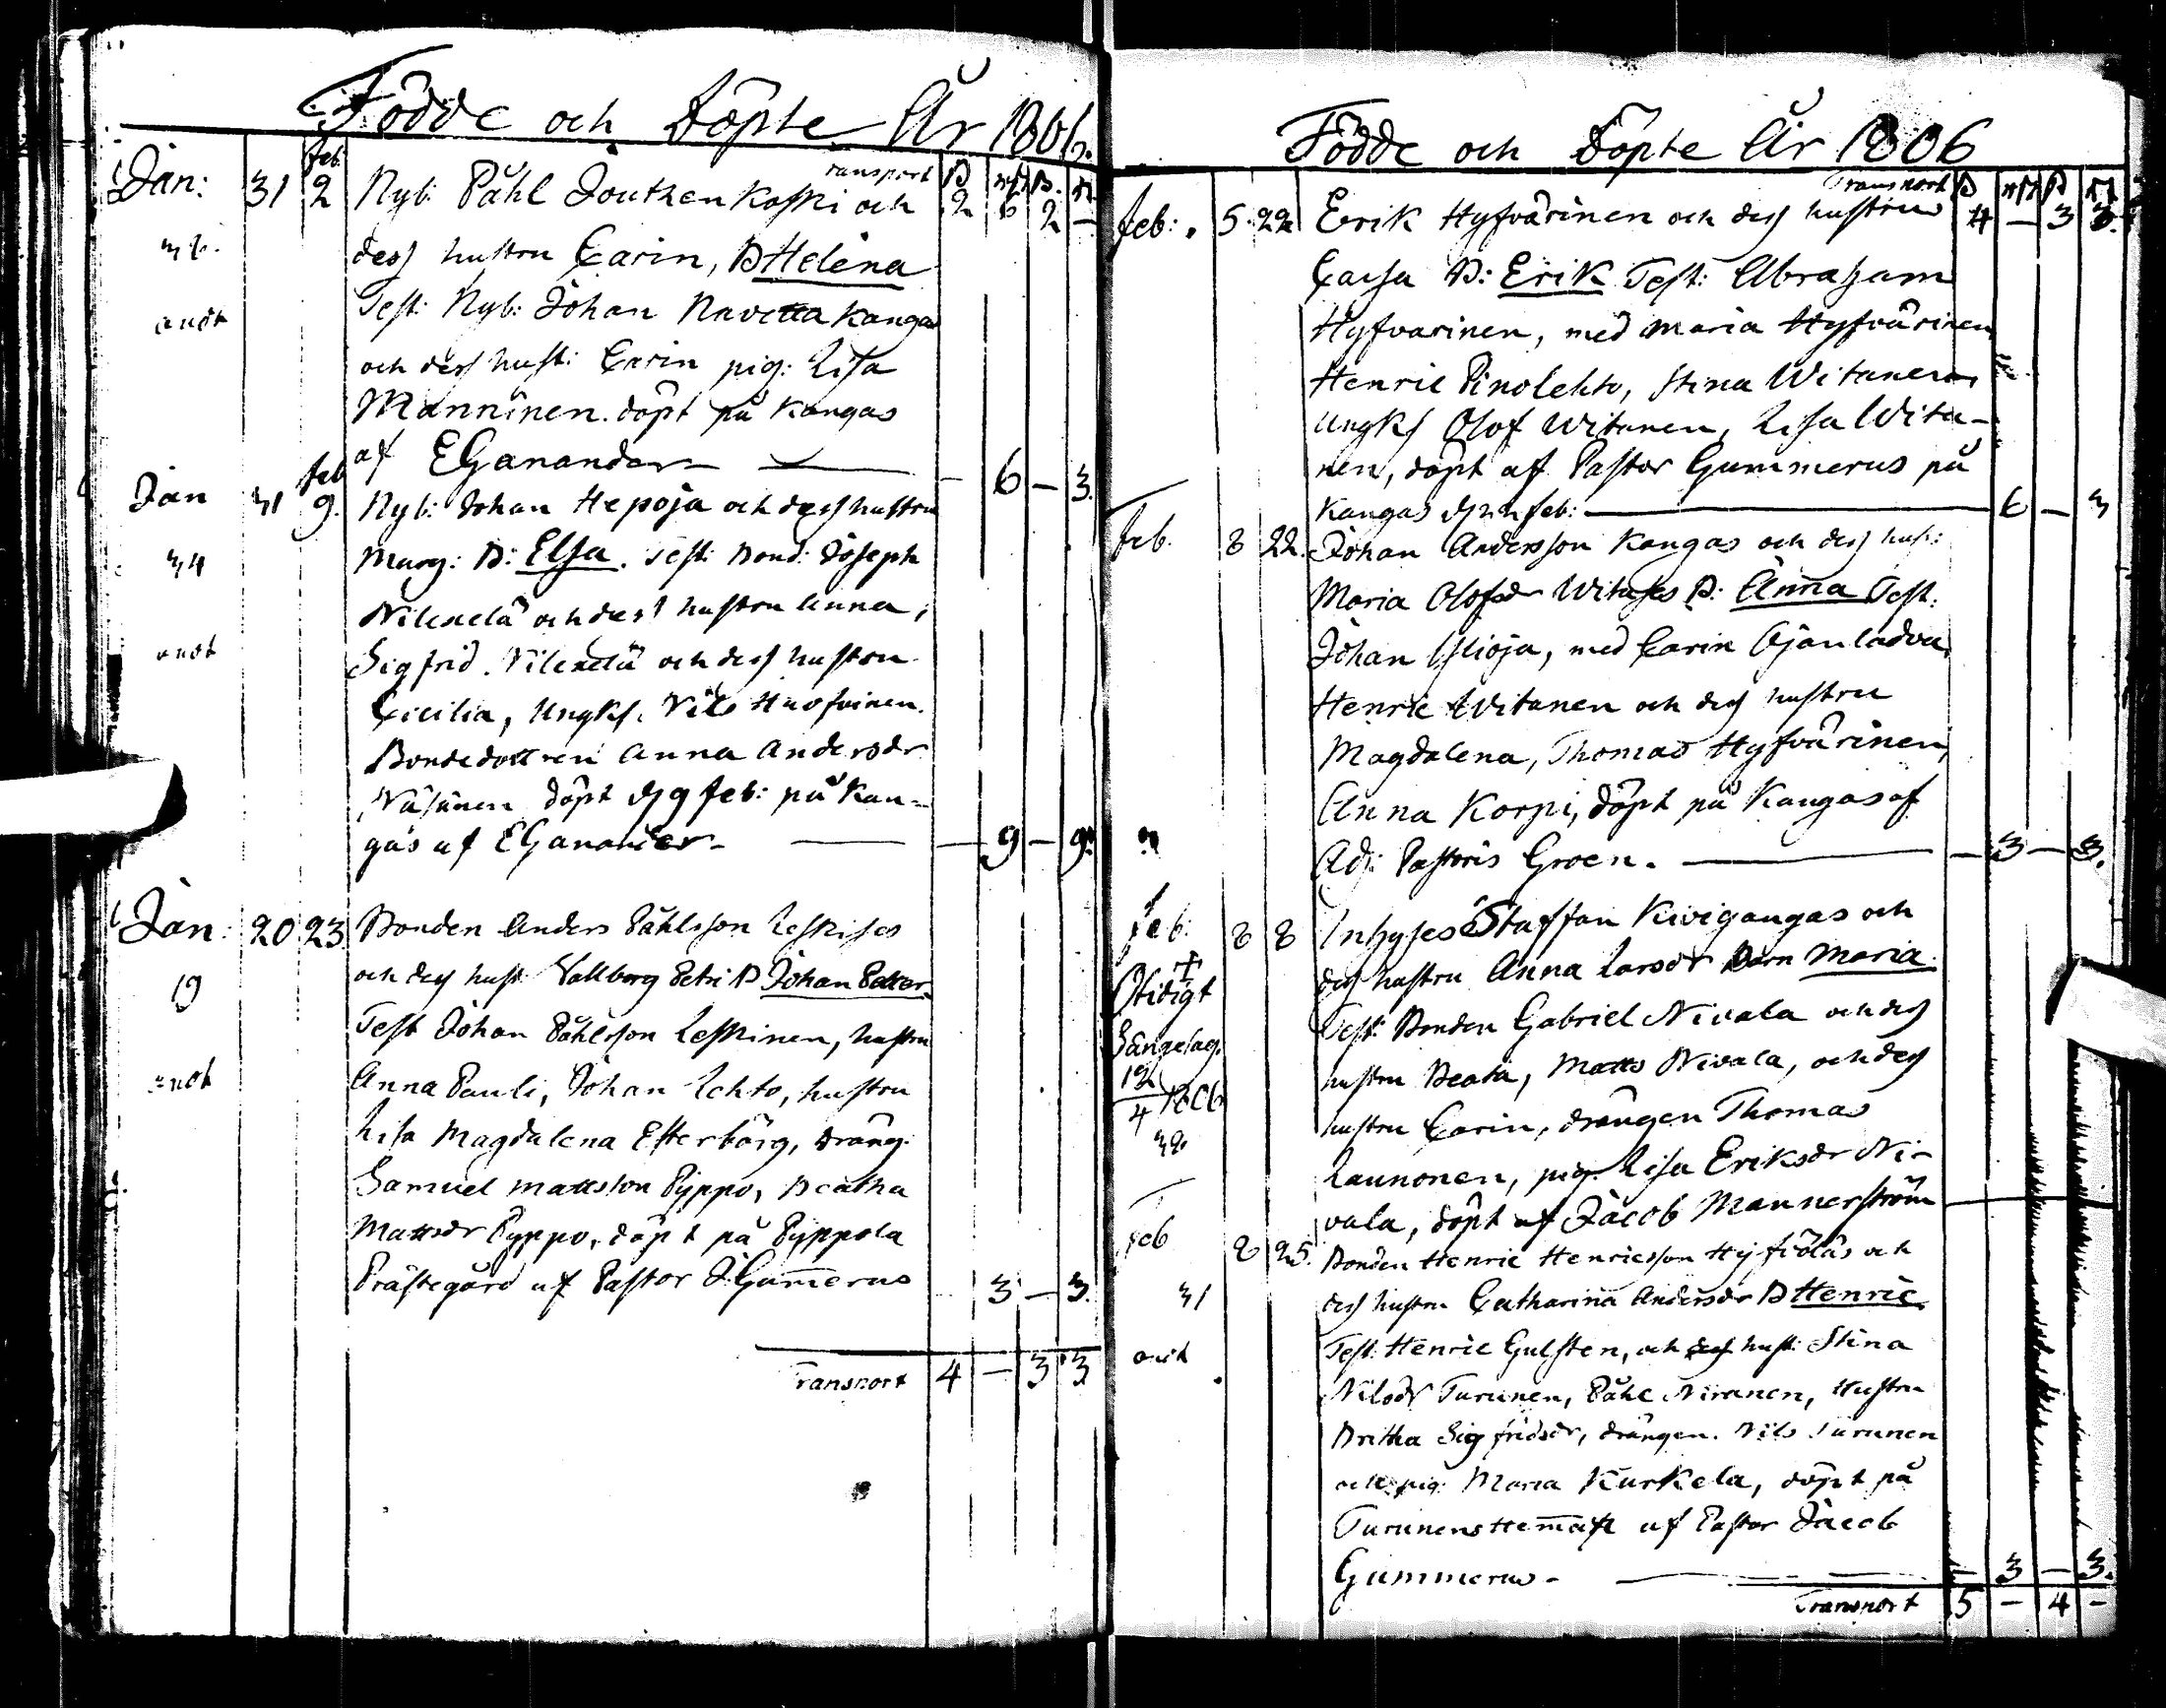 Födde och Döpte År 1806.
Transport
Jan: 31 feb 2 Nyb: Påhl Jouthen Koski och 2 6 2 -
des hustru Carin, B Helena
Test: Nyb: Johan Navetta Kangas
och des hust: Carin pig: Lisa
Manninen. döpt på Kangas
af EGanander - 6 - 3.
Jan 31 feb 9. Nyb: Johan Hepoja och des hustru
34 Marg: B: Elsa. Test: Bond: Joseph
Nilexelä och des hustru Anna,
Sigfrid Nilexelä och des hustru
Cicilia, Ungks. Nils Huofvinen.
Bondedottren Anna Andersdr
Väisänen döpt d 9 feb: på Kan-
gas af EGanander - 9 - 9.
Jan: 20 23 Bonden Anders Påhlsson Leskises
19 och des hust Vallborg Petri B Johan Petter.
Test Johan Påhlsson Leskinen, hustru
Anna Pauli, Johan Lehto, hustru
Lisa Magdalena Esterbörg, dräng:
Samuel Mattsson Pyppo, Beatha
Mattsdr Pyppo, döpt på Pyppola
Prästegård af Pastor J. Gum̄erus 3 - 3.
Transport 4 - 3 3
Födde och Döpte År 1806
Transport
feb: 5. 22 Erik Hyfvärinen och des hustru 4 - 3 3.
Caisa B: Erik Test: Abraham
Hyfvarinen, med Maria Hyfvärinen
Henric Pinolehto, Stina Witanen
Ungks Olof Witanen, Lisa Wita-
nen, döpt af Pastor Gummerus på
Kangas d 22 feb: 6 - 3
Feb. 8 22. Johan Andersson Kangas och des hus:
Maria Olofsdr Witases B: Anna Test:
Johan Ylioja, med Carin Ojanladva
Henric Witanen och des hustru
Magdalena, Thomas Hyfvärinen,
Anna Korpi, döpt på Kangas af
Adj: Pastoris Groen. - 3 - 3.
feb: 8 8 Inhyses Staffan Kivigangas och
des hustru Anna Larsdr Barn Maria.
Test: Bonden Gabriel Nivala och des
hustru Beata, Matts Nivala, och des
hustru Carin, drängen Thomas
Launonen, pig. Lisa Eriksdr Ni-
vala, döpt af Jacob Mannerström
+
Otidigt
Sängelag.
12/4 1806
32
Feb 8 25. Bonden Henric Henricsson Hyfiöläs och
31 des hustru Catharina Andersdr B Henric.
Test: Henric Gulsten, och des hust: Stina
Nilsdr Turunen, Påhl Niranen, Hustru
Britha Sigfridsdr, drängen. Nils Turunen
och pig: Maria Kurkela, döpt på
Turunens Hem̄an af Pastor Jacob
Gummerus - 3 - 3.
Transport 5 - 4 -